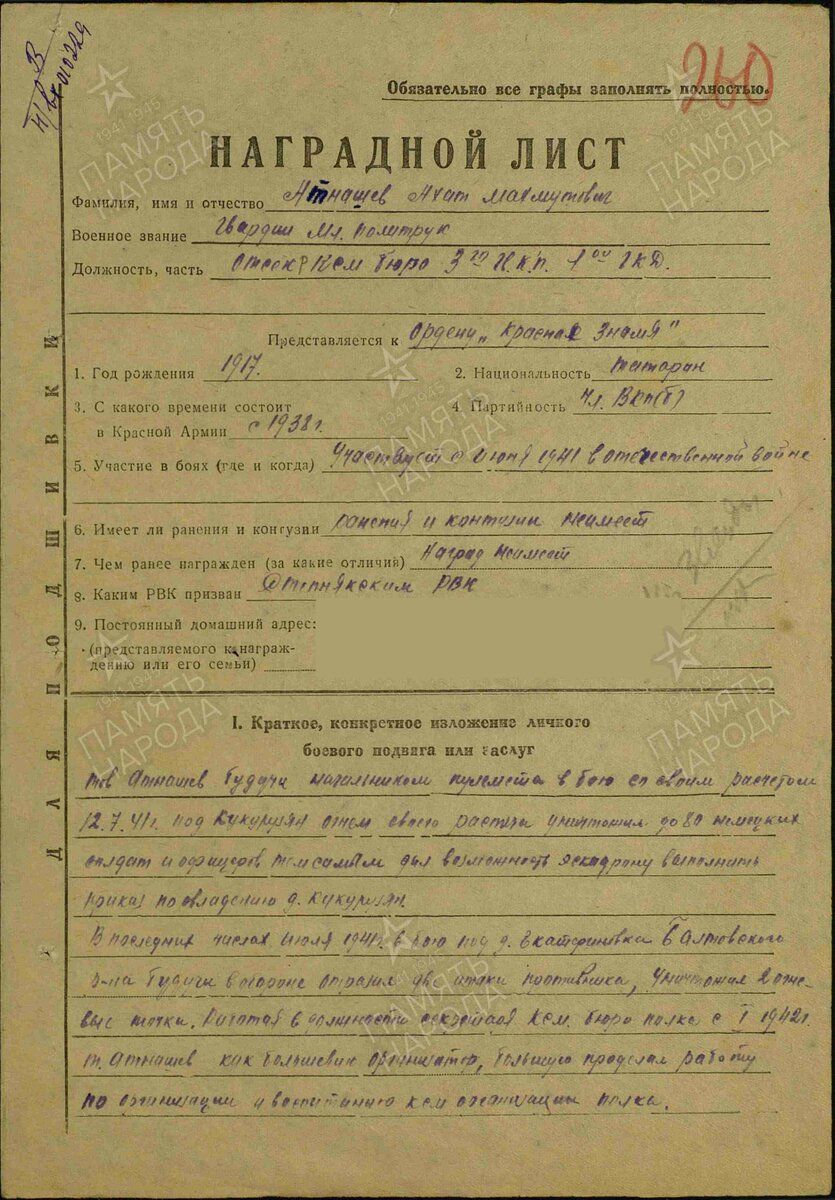 Н/вх В 010229
260
Обязательно все графы заполнять полностью.
НАГРАДНОЙ ЛИСТ
Фамилия, имя и отчество Атнашев Ахат Махмутович
Военное звание Гвардии Мл. Политрук
Должность, часть Отсекр Ксм бюро 3го Г.К.П. 1ой ГКД.
Представляется к Ордену „Красная Знамя"
1. Год рождения 1917г.
2. Национальность татарин
3. С какого времени состоит
в Красной Армии с 1938г.
4. Партийность Чл. ВКП(б)
5. Участие в боях (где и когда) Участвует с июня 1941 в отечественной войне
6. Имеет ли ранения и контузии ранения и контузии неимеет
7. Чем ранее награжден (за какие отличия) Наград неимеет
8. Каким РВК призван Степнякским РВК
9. Постоянный домашний адрес:
(представляемого к награж-
дению или его семьи)
ДЛЯ ПОДШИВКИ
I. Краткое, конкретное изложение личного
боевого подвига или заслуг
тов Атнашев будучи начальником пулемета в бою со своим расчетом
12.7.41г. под Кукурузян огнем своего расчета уничтожил до 80 немецких
солдат и офицеров тем самым дал возможность эскадрону выполнить
приказ по овладению д. Кукурузян.
В последних числах июля 1941г. в бою под д. Екатериновка Балтовского
р-на будучи в обороне отразил две атаки противника, уничтожил 2 огне-
вые точки. Работая в должности секретаря Ксм. бюро полка с I 1942г.
т. Атнашев как большевик организатор, большую проделал работу
по организации и воспитанию ксм организации полка.
ПАМЯТЬ НАРОДА
1941-1945